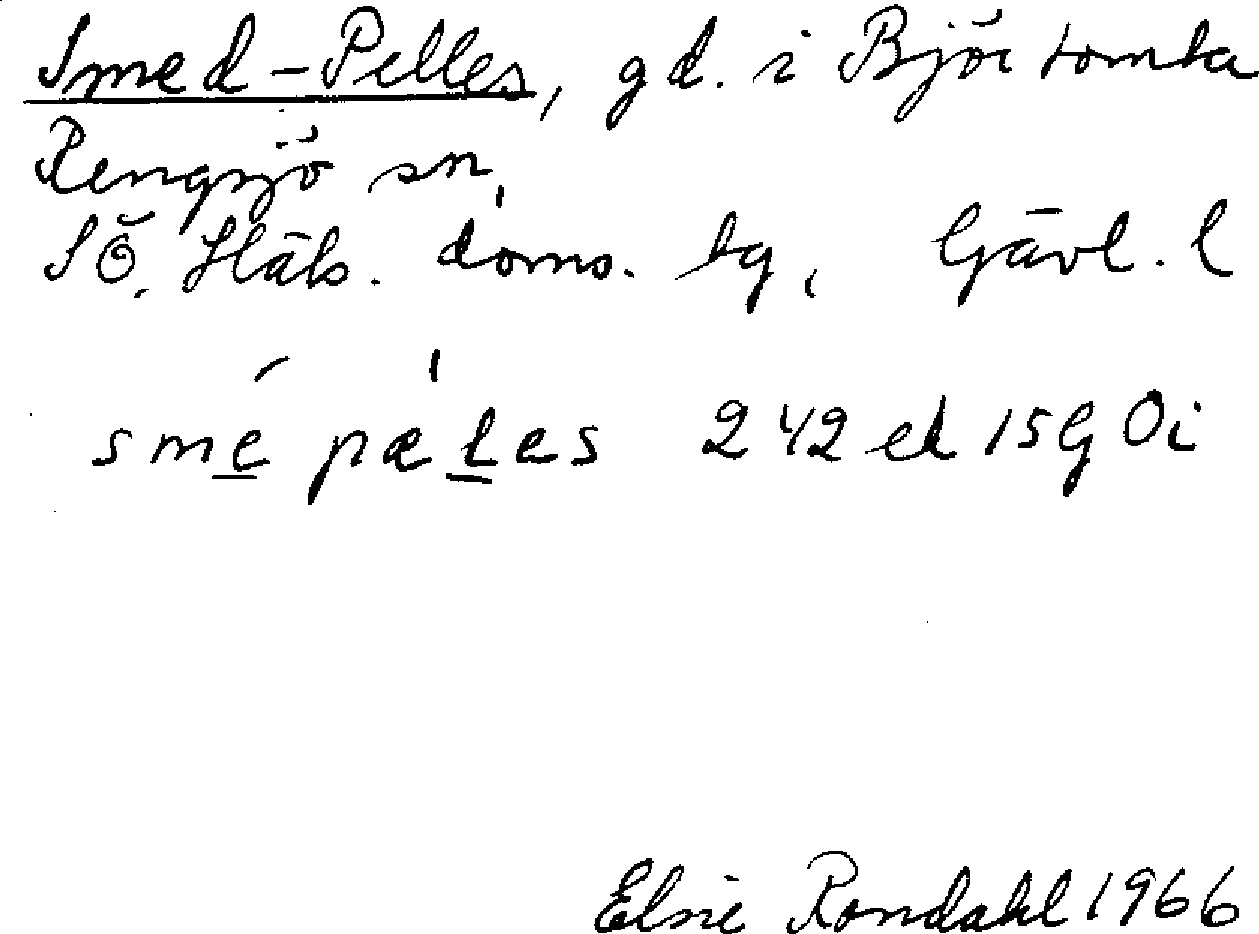 Smed-Pelles, gd. i Björtomta
Rengsjö sn,
SÖ. Häls. doms. tg, Gävl. l
smé pæ'les 242 ek 15G 0i
Elsie Rondahl 1966